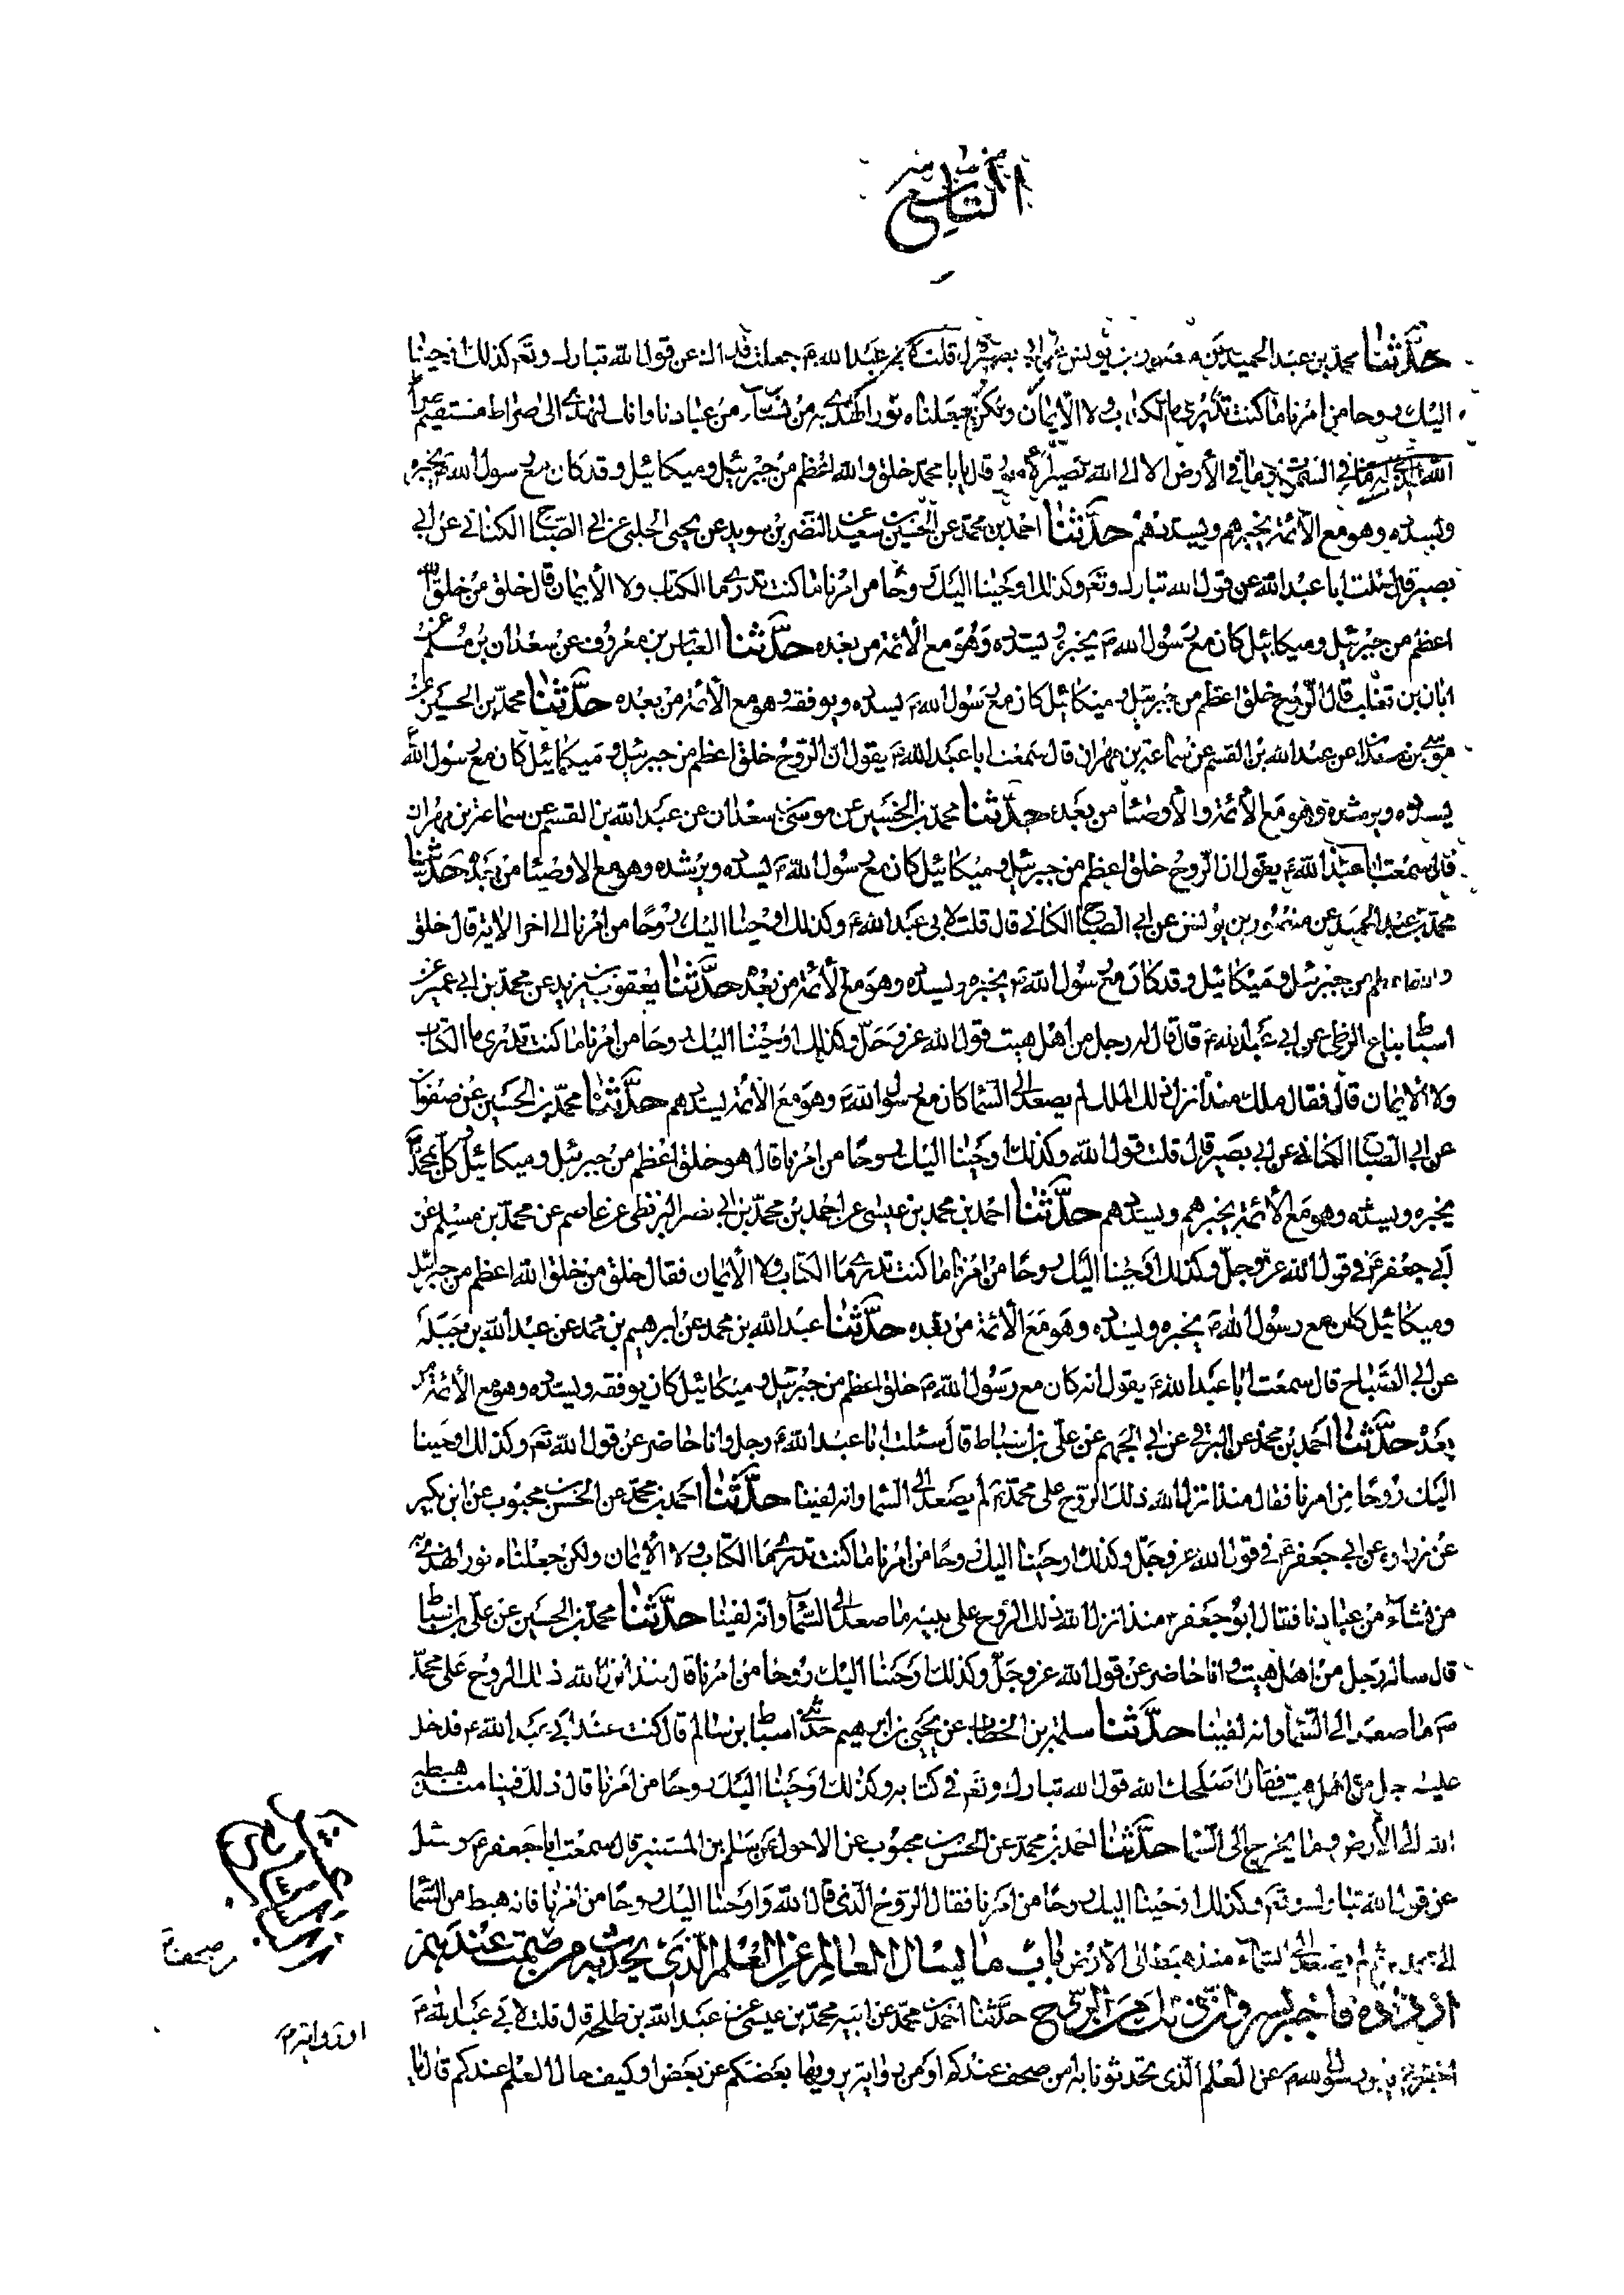 التاسع
حدثنا محمد بن عبد الحميد عن منصور بن يونس عن ابي بصير قال قلت لابي عبد الله ع جعلت فداك عن قول الله تبارك وتع وكذلك اوحينا
اليك روحا من امرنا ما كنت تدري ما الكتاب ولا الايمان ولكن جعلناه نورا نهدي به من نشاء من عبادنا وانك لتهدي الى صراط مستقيم صراط
الله الذي له ما في السموات وما في الأرض الا الى الله تصير الامور قال يا با محمد خلق والله اعظم من جبرئيل وميكائيل وقد كان مع رسول الله ص يخبره
ويسدده وهو مع الأئمة يخبرهم ويسددهم حدثنا احمد بن محمد عن الحسين بن سعيد عن النضر بن سويد عن يحيى الحلبي عن ابي الصباح الكناني عن ابي
بصير قال قلت ابا عبد الله عن قول الله تبارك وتع وكذلك اوحينا اليك روحا من امرنا ما كنت تدري ما الكتاب ولا الأيمان قال خلق من خلق الله
اعظم من جبرئيل وميكائيل كان مع رسول الله ص يخبره ويسدده وهو مع الأئمة من بعده حدثنا العباس بن معروف عن سعدان بن مسلم عن
ابان بن تغلب قال الروح خلق اعظم من جبرئيل وميكائيل كان مع رسول الله ص يسدده ويوفقه وهو مع الأئمة من بعده حدثنا محمد بن الحسين عن
موسى بن سعدان عن عبد الله بن القسم عن سماعة بن مهران قال سمعت ابا عبد الله ع يقول ان الروح خلق اعظم من جبرئيل وميكائيل كان مع رسول الله
يسدده ويرشده وهو مع الأئمة والأوصيا من بعده حدثنا محمد بن الحسين عن موسى بن سعدان عن عبد الله بن القسم عن سماعة بن مهران
قال سمعت ابا عبد الله ع يقول ان الروح خلق اعظم من جبرئيل وميكائيل كان مع رسول الله ص يسدده ويرشده وهو مع الاوصيا من بعده حدثنا
محمد بن عبد الحميد عن منصور بن يونس عن ابي الصباح الكناني قال قلت لابي عبد الله ع وكذلك اوحينا اليك روحا من امرنا الى اخر الاية قال خلق
والله اعظم من جبرئيل وميكائيل وقد كان مع رسول الله ص يخبره ويسدده وهو مع الأئمة من بعده حدثنا يعقوب بن يزيد عن محمد بن ابي عمير عن
اسباط بياع الزطي عن ابي عبد الله ع قال قال له رجل من اهل هيت قول الله عز وجل وكذلك اوحينا اليك روحا من امرنا ما كنت تدري ما الكتاب
ولا الايمان قال فقال ملك منذ انزل ذلك الملك لم يصعد الى السما كان مع رسول الله ص وهو مع الأئمة يسددهم حدثنا محمد بن الحسين عن صفوان
عن ابي الصباح الكناني عن ابي بصير قال قلت قول الله وكذلك اوحينا اليك روحا من امرنا قال هو خلق اعظم من جبرئيل وميكائيل وكل بمحمد
يخبره ويسدده وهو مع الأئمة يخبرهم ويسددهم حدثنا احمد بن محمد بن عيسى عن احمد بن محمد بن ابي نصر البزنطي عن عاصم عن محمد بن مسلم عن
ابي جعفر ع في قول الله عز وجل وكذلك اوحينا اليك روحا من امرنا ما كنت تدري ما الكتاب ولا الأيمان فقال خلق من خلق الله اعظم من جبرائيل
وميكائيل كان مع رسول الله ص يخبره ويسدده وهو مع الأئمة من بعده حدثنا عبد الله بن محمد عن ابرهيم بن محمد عن عبد الله بن جبلة
عن ابي الصباح قال سمعت ابا عبد الله ع يقول انه كان مع رسول الله ص خلق اعظم من جبرئيل وميكائيل كان يوفقه ويسدده وهو مع الأئمة من
بعد حدثنا احمد بن محمد عن البرقي عن ابي الجهم عن علي بن اسباط قال سئلت ابا عبد الله ع رجل وانا حاضر عن قول الله تع وكذلك اوحينا
اليك روحا من امرنا فقال منذ انزل الله ذلك الروح على محمد ص لم يصعد الى السما وانه لفينا حدثنا احمد بن محمد عن الحسن بن محبوب عن ابن بكير
عن زرارة عن ابي جعفر ع في قول الله عز وجل وكذلك اوحينا اليك روحا من امرنا ما كنت تدري ما الكتاب ولا الأيمان ولكن جعلناه نورا نهدي به
من نشاء من عبادنا فقال ابو جعفر ع منذ انزل الله ذلك الروح على نبيه ما صعد الى السمآ وانه لفينا حدثنا محمد بن الحسين عن علي بن اسباط
قال ساله رجل من اهل هيت وانا حاضر عن قول الله عز وجل وكذلك اوحينا اليك روحا من امرنا قال منذ انزل الله ذلك الروح على محمد
ص ما صعد الى السما وانه لفينا حدثنا سلمة بن الخطاب عن يحيى بن ابرهيم حدثني اسباط بن سالم قال كنت عند ابي عبد الله ع فدخل
عليه رجل من اهل هيت فقال اصلحك الله قول الله تبارك وتع في كتابه وكذلك اوحينا اليك روحا من امرنا قال ذلك فينا منذ هبطه
الله الى الأرض وما يخرج الى السما حدثنا احمد بن محمد عن الحسن بن محبوب عن الاحول عن سلام بن المستنير قال سمعت ابا جعفر ع وسئل
عن قول الله تبارك وتع وكذلك اوحينا اليك روحا من امرنا فقال الروح الذي قال الله واوحينا اليك روحا من امرنا فانه هبط من السما
الى محمد ص ثم لم يصعد الى السماء منذ هبط الى الأرض باب ما يسال العالم عن العلم الذي يحدث به من صحف عندهم
او رواة فاخبر بسر وان ذلك من الروح حدثنا احمد بن محمد عن ابيه محمد بن عيسى عن عبد الله بن طلحة قال قلت لابي عبد الله ع
اخبرني يابن رسول الله ص عن العلم الذي تحدثونا به امن صحف عندكم او من رواية يرويها بعضكم عن بعض او كيف حال العلم عندكم قال يا